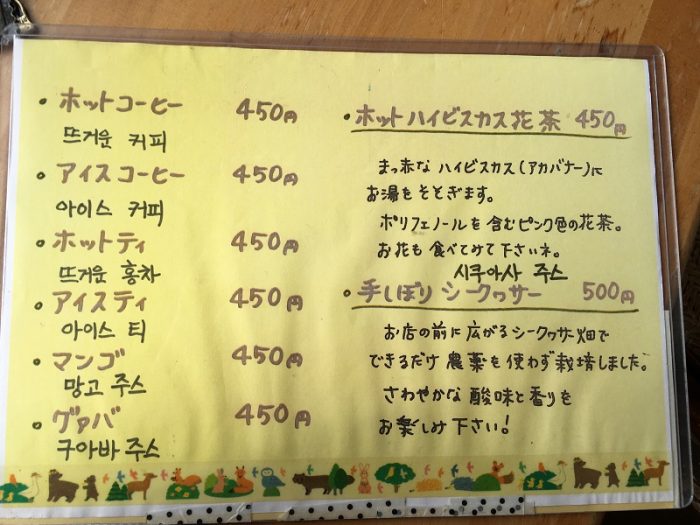 • ホットコーヒー 450円
뜨거운 커피
• アイスコーヒー 450円
아이스 커피
• ホットティ 450円
뜨거운 홍차
• アイスティ 450円
아이스 티
• マンゴ 450円
망고 주스
• グァバ 450円
구아바 주스
• ホットハイビスカス花茶 450円
まっ赤な ハイビスカス(アカバナー)に
お湯をそそぎます。
ポリフェノールを含むピンク色の花茶。
お花も食べてみて下さいネ。
시쿠아사 주스
• 手しぼり シークヮサー 500円
お店の前に広がるシークヮサー畑で
できるだけ農薬を使わず栽培しました。
さわやかな酸味と香りを
お楽しみ下さい!